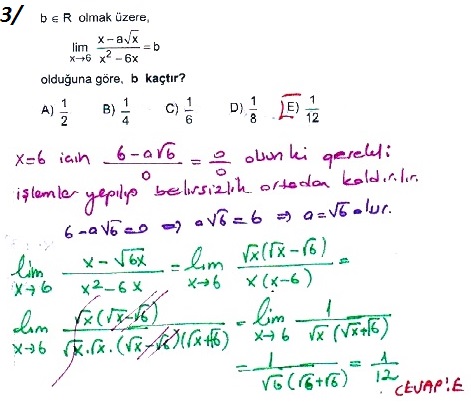 3/ b ∈ R olmak üzere,
lim x→6 (x – a√x)/(x² – 6x) = b
olduğuna göre, b kaçtır?
A) 1/2 B) 1/4 C) 1/6 D) 1/8 E) 1/12
x=6 için (6-a√6)/0 = 0/0 olsun ki gerekli
işlemler yapılıp belirsizlik ortadan kaldırılır.
6-a√6=0 ⇒ a√6=6 ⇒ a=√6 olur.
lim x→6 (x-√6x)/(x²-6x) = lim x→6 √x(√x-√6)/x(x-6) =
lim x→6 √x(√x-√6)/√x.√x.(√x-√6)(√x+√6) = lim x→6 1/√x(√x+√6)
= 1/√6(√6+√6) = 1/12
CEVAP:E